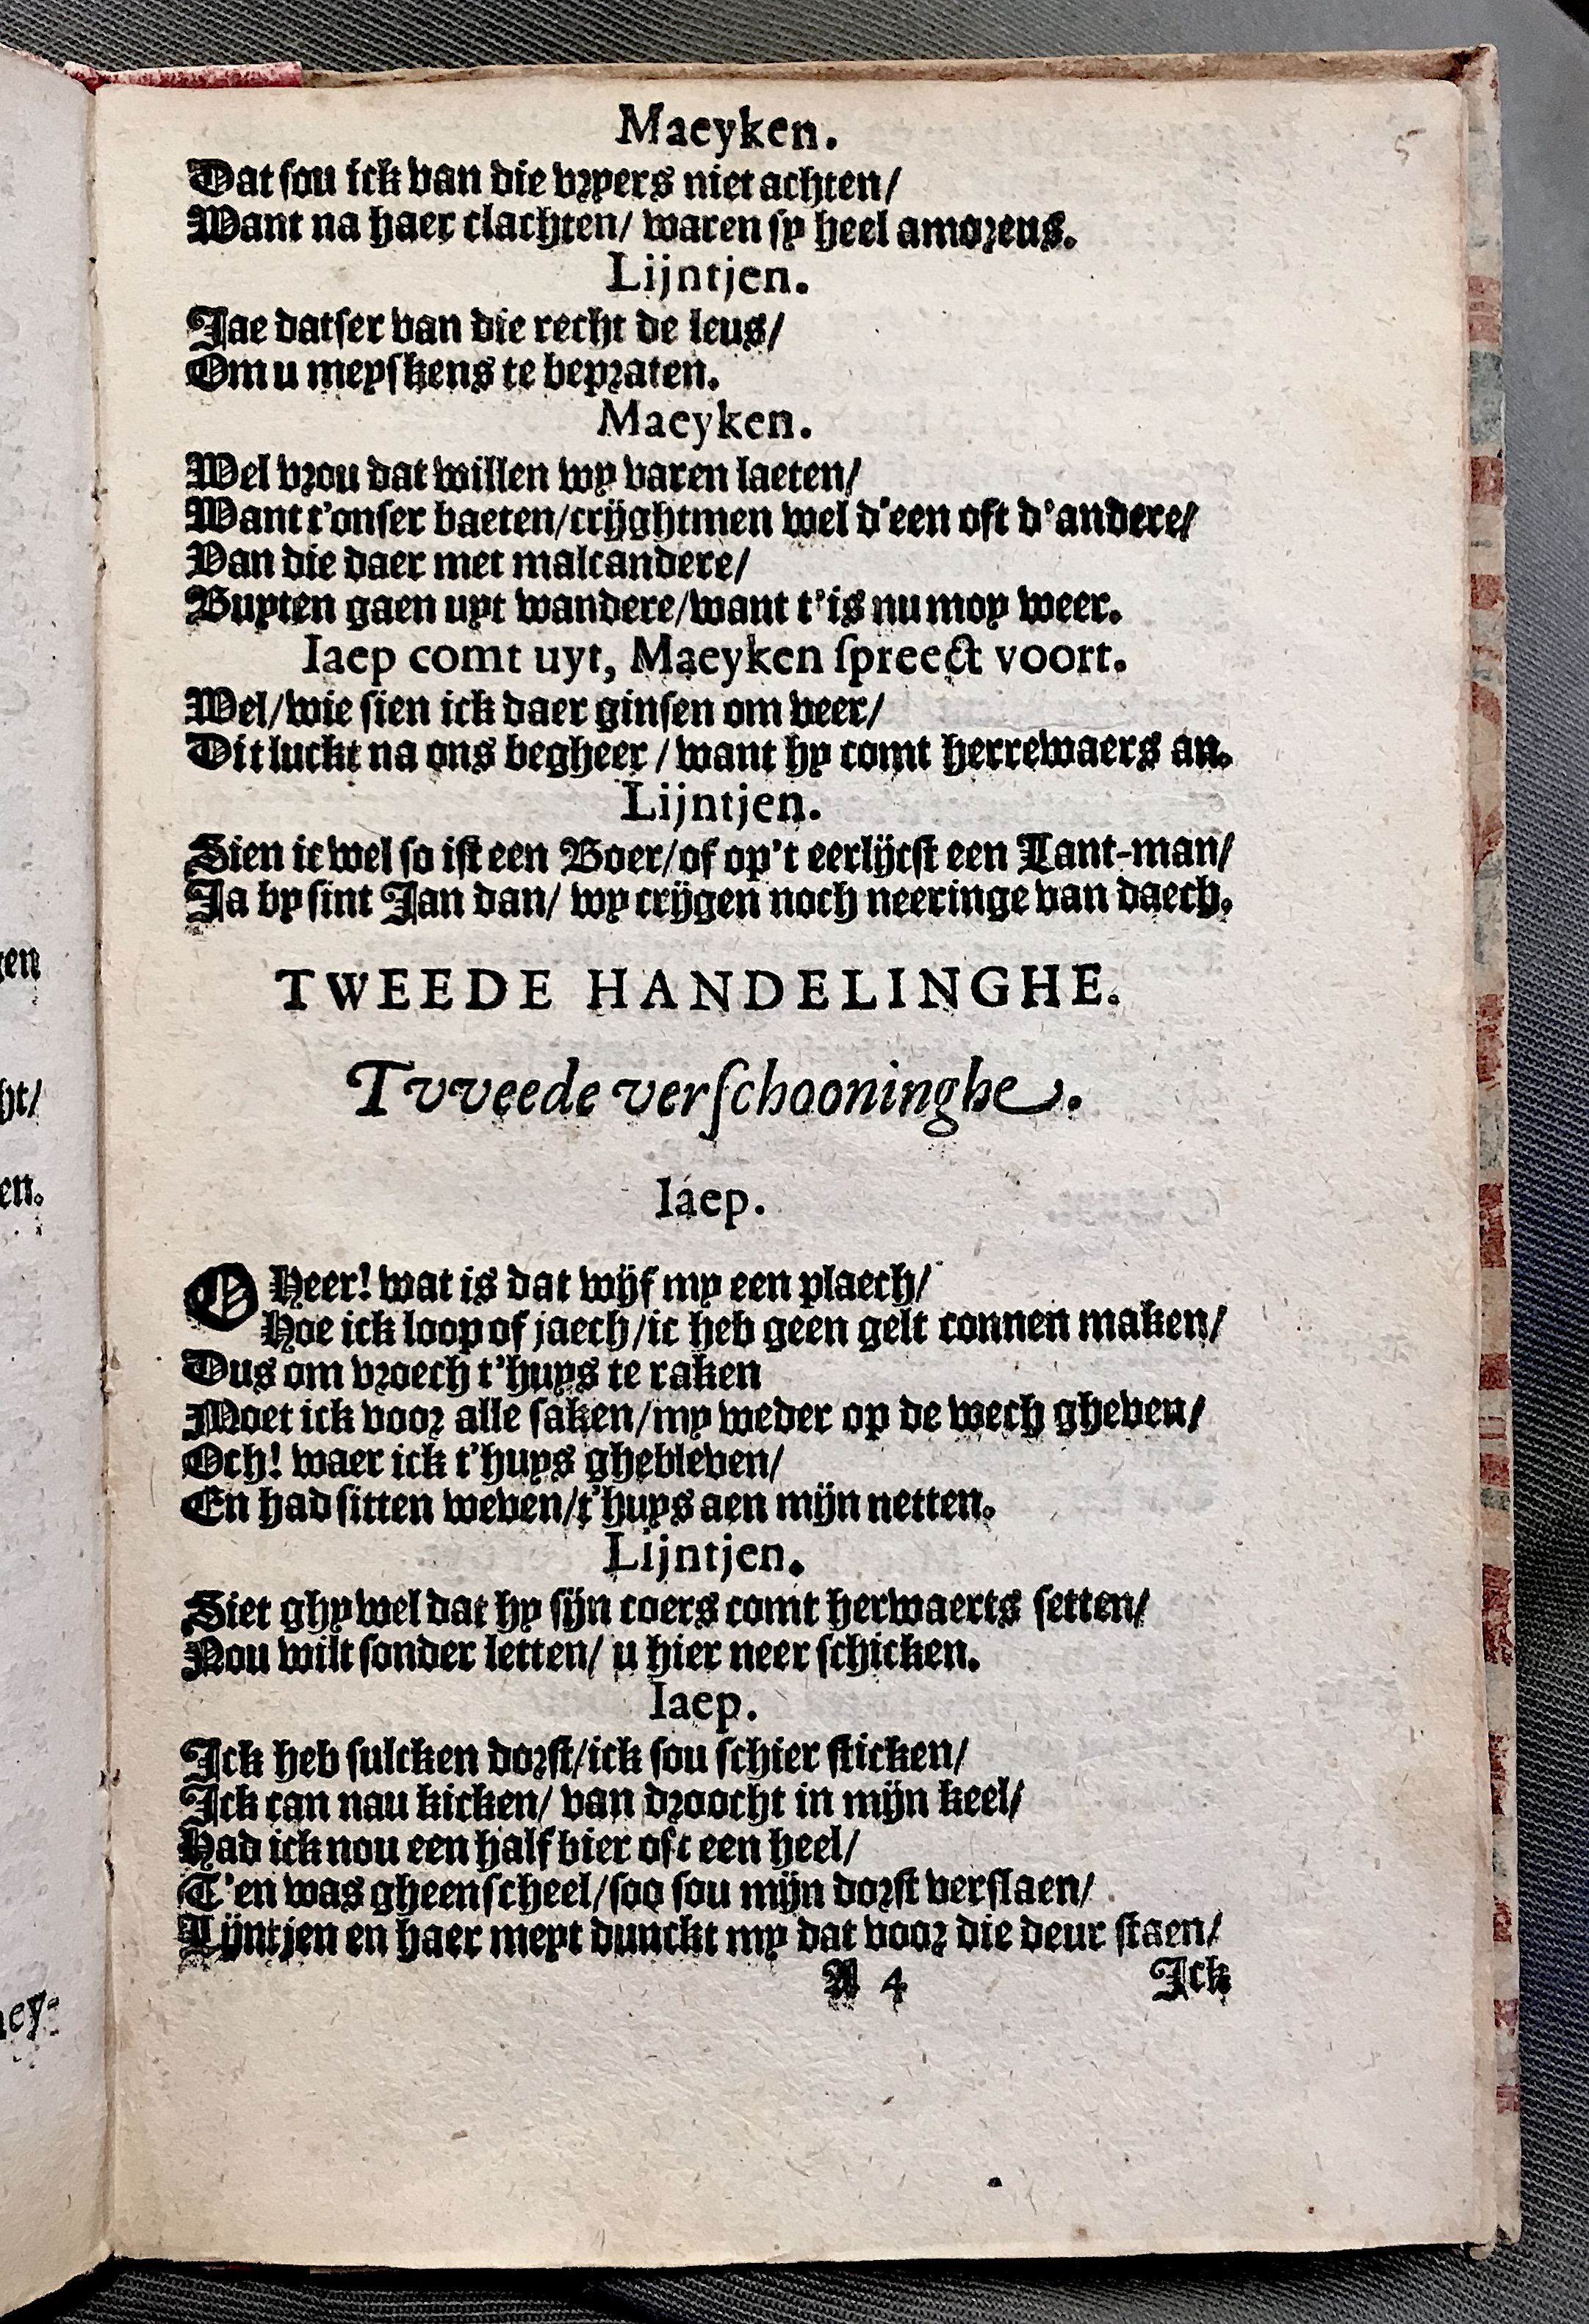 5
Maeyken.
Dat sou ick van die vryers niet achten/
Want na haer clachten/ waren sy heel amoreus.
Lijntjen.
Jae datser van die recht de leus/
Om u meyskens te bepraten.
Maeyken.
Wel vrou dat willen wy varen laeten/
Want t'onser baeten/crijghtmen wel d'een oft d'andere/
Van die daer met malcandere/
Buyten gaen uyt wandere/want t'is nu moy weer.
Iaep comt uyt, Maeyken spreect voort.
Wel/wie sien ick daer ginsen om veer/
Dit luckt na ons begheer / want hy comt herrewaers an.
Lijntjen.
Sien ic wel so ist een Boer/of op't eerlijcst een Lant-man/
Ja by sint Jan dan/ wy crijgen noch neeringe van daech.
TWEEDE HANDELINGHE.
Tvveede verschooninghe.
Iaep.
O Heer! wat is dat wijf my een plaech/
Hoe ick loop of jaech/ic heb geen gelt connen maken/
Dus om vroech t'huys te raken
Moet ick voor alle saken/my weder op de wech gheven/
Och! waer ick t'huys ghebleven/
En had sitten weven/t'huys aen mijn netten.
Lijntjen.
Siet ghy wel dat hy sijn coers comt herwaerts setten/
Nou wilt sonder letten/ u hier neer schicken.
Iaep.
Ick heb sulcken dorst/ick sou schier sticken/
Ick can nau kicken/ van droocht in mijn keel/
Had ick nou een half bier oft een heel/
T'en was gheen scheel/soo sou mijn dorst verslaen/
Lijntjen en haer meyt dunckt my dat voor die deur staen/
A 4 Ick
gen
ht/
en.
aey-